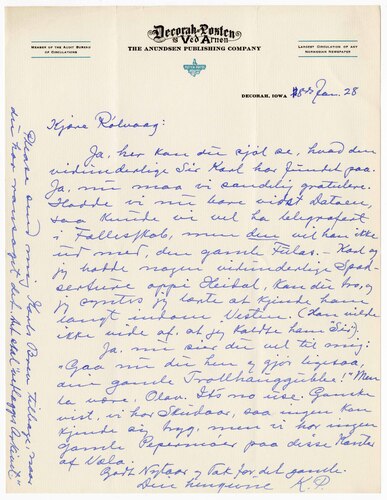 Decorah-Posten
Ved Arnen
THE ANUNDSEN PUBLISHING COMPANY
MEMBER OF THE AUDIT BUREAU
OF CIRCULATIONS
LARGEST CIRCULATION OF ANY
NORWEGIAN NEWSPAPER
DECORAH, IOWA 18de Jan. 28
Kjære Rølvaag:
Ja, her kan du sjøl se, hvad den
vidunderlige Sir Karl har fundet paa.
Ja, nu maa vi sandelig gratulere.
Hadde vi nu bare vidst Datoen,
saa kunde vi vel ha telegrafert
i Fællesskab, men den vil han ikke
ud med, den gamle Fulas. - Karl og
jeg hadde nogen vidunderlige Spad-
serture oppi Heidal, kan du tro, og
jeg syntes jeg lærte at kjende ham
langt indom Vesten. (Han vilde
ikke vide af, at jeg kaldte ham Sir).
Ja, nu sier du vel til mig:
"Gaa nu du hen og gjør ligesaa,
den gamle Troll
la være, Olav. It's no use. Ganske
vist, vi har Skudaar, saa ingen kan
kjende sig tryg, men vi har ingen
gamle Pepermøer paa disse Kanter
af Væla.
Godt Nytaar og Tak for det gamle.
Din hengivne K. P.
Please send mig Karls Brev tilbage naar
du har ransaget det. Det skal